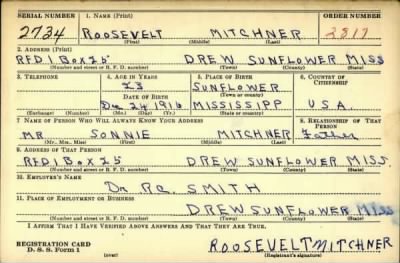 SERIAL NUMBER 1. Name (Print) ORDER NUMBER
2734 ROOSEVELT MITCHNER 2817
(First) (Middle) (Last)
2. Address (Print)
RFD 1 Box 25 DREW SUNFLOWER MISS
(Number and street or R. F. D. number) (Town) (County) (State)
3. Telephone 4. Age in Years 5. Place of Birth 6. Country of Citizenship
23 SUNFLOWER
Date of Birth (Town or county)
Dec 24 1916 MISSISSIPP U.S.A.
(Exchange) (Number) (Mo.) (Day) (Yr.) (State or country)
7. Name of Person Who Will Always Know Your Address 8. Relationship of That Person
MR SONNIE MITCHNER Father
(Mr., Mrs., Miss) (First) (Middle) (Last)
9. Address of That Person
RFD 1 Box 25 DREW SUNFLOWER MISS.
(Number and street or R. F. D. number) (Town) (County) (State)
10. Employer's Name
Dr RC. SMITH
11. Place of Employment or Business
DREW SUNFLOWER MISS
(Number and street or R. F. D. number) (Town) (County) (State)
I Affirm That I Have Verified Above Answers and That They Are True.
REGISTRATION CARD ROOSEVELT MITCHNER
D. S. S. Form 1 (over) (Registrant's signature)